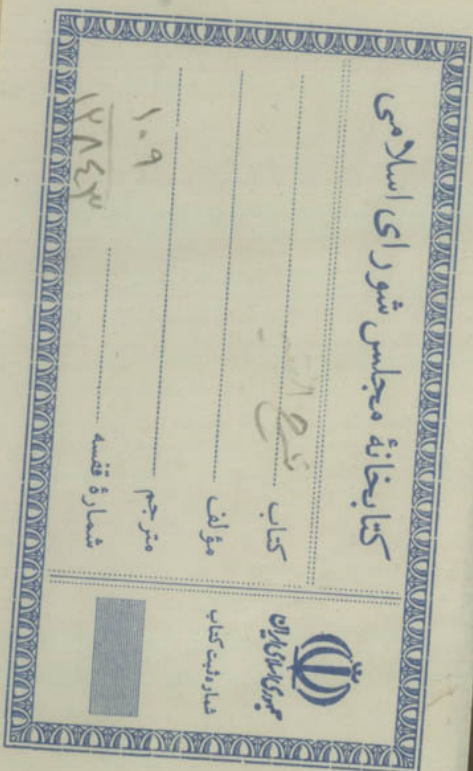 کتابخانهٔ مجلس شورای اسلامی
کتاب شرح
مؤلف
مترجم
شمارهٔ قفسه
۱۰۹
۱۲۸۴۳
جمهوری اسلامی ایران
شمارهٔ ثبت کتاب